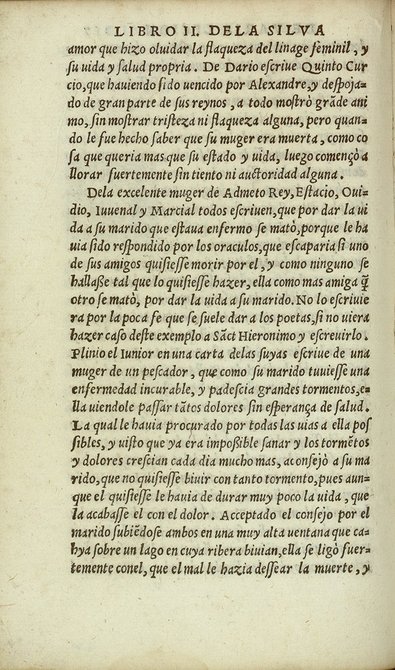 LIBRO II. DELA SILVA
amor que hizo oluidar la flaqueza del linage feminil, y
su uida y salud propria. De Dario escriue Quinto Cur-
cio, que hauiendo sido uencido por Alexandre, y despoja-
do de gran parte de sus reynos, a todo mostrò grãde ani
mo, sin mostrar tristeza ni flaqueza alguna, pero quan-
do le fue hecho saber que su muger era muerta, como co
sa que queria mas que su estado y uida, luego començò a
llorar fuertemente sin tiento ni auctoridad alguna.
Dela excelente muger de Admeto Rey, Estacio, Oui-
dio, Iuuenal y Marcial todos escriuen, que por dar la ui
da a su marido que estaua enfermo se matò, porque le ha
uia sido respondido por los oraculos, que escaparia si uno
de sus amigos quisiesse morir por el, y como ninguno se
hallasse tal que lo quisiesse hazer, ella como mas amiga q̃
otro se matò, por dar la uida a su marido. No lo escriuie
ra por la poca fe que se suele dar a los poetas, si no uiera
hazer caso deste exemplo a Sãct Hieronimo y escreuirlo.
Plinio el Iunior en una carta delas suyas escriue de una
muger de un pescador, que como su marido tuuiesse una
enfermedad incurable, y padescia grandes tormentos, e-
lla uiendole passar tãtos dolores sin esperança de salud.
La qual le hauia procurado por todas las uias a ella pos
sibles, y uisto que ya era impossible sanar y los tormẽtos
y dolores crescian cada dia mucho mas, aconsejò a su ma
rido, que no quisiesse biuir con tanto tormento, pues aun-
que el quisiesse le hauia de durar muy poco la uida, que
la acabasse el con el dolor. Acceptado el consejo por el
marido subiẽdose ambos en una muy alta uentana que ca-
hya sobre un lago en cuya ribera biuian, ella se ligò fuer-
temente conel, que el mal le hazia dessear la muerte, y